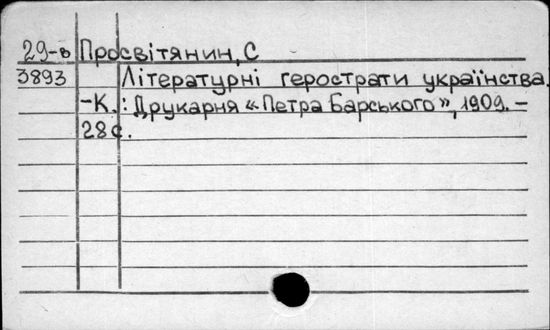 29-в Просвітянин, С
3893 Літературні герострати українства.
-К.: Друкарня «Петра Барського», 1909.-
28 с.